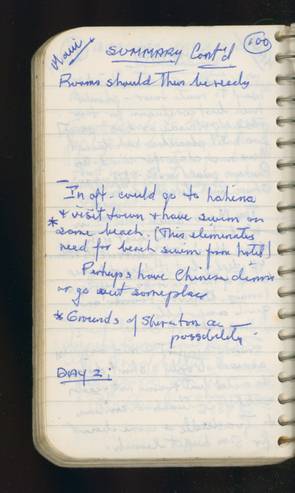 Maui
SUMMARY Cont'd
100
Rooms should then be ready
In aft. could go to Lahina
& visit town & have swim on
* some beach. (This eliminates
need for beach swim from hotel)
Perhaps have Chinese dinner
or go out someplace
* Grounds of Sheraton a
possibility.
DAY 2: